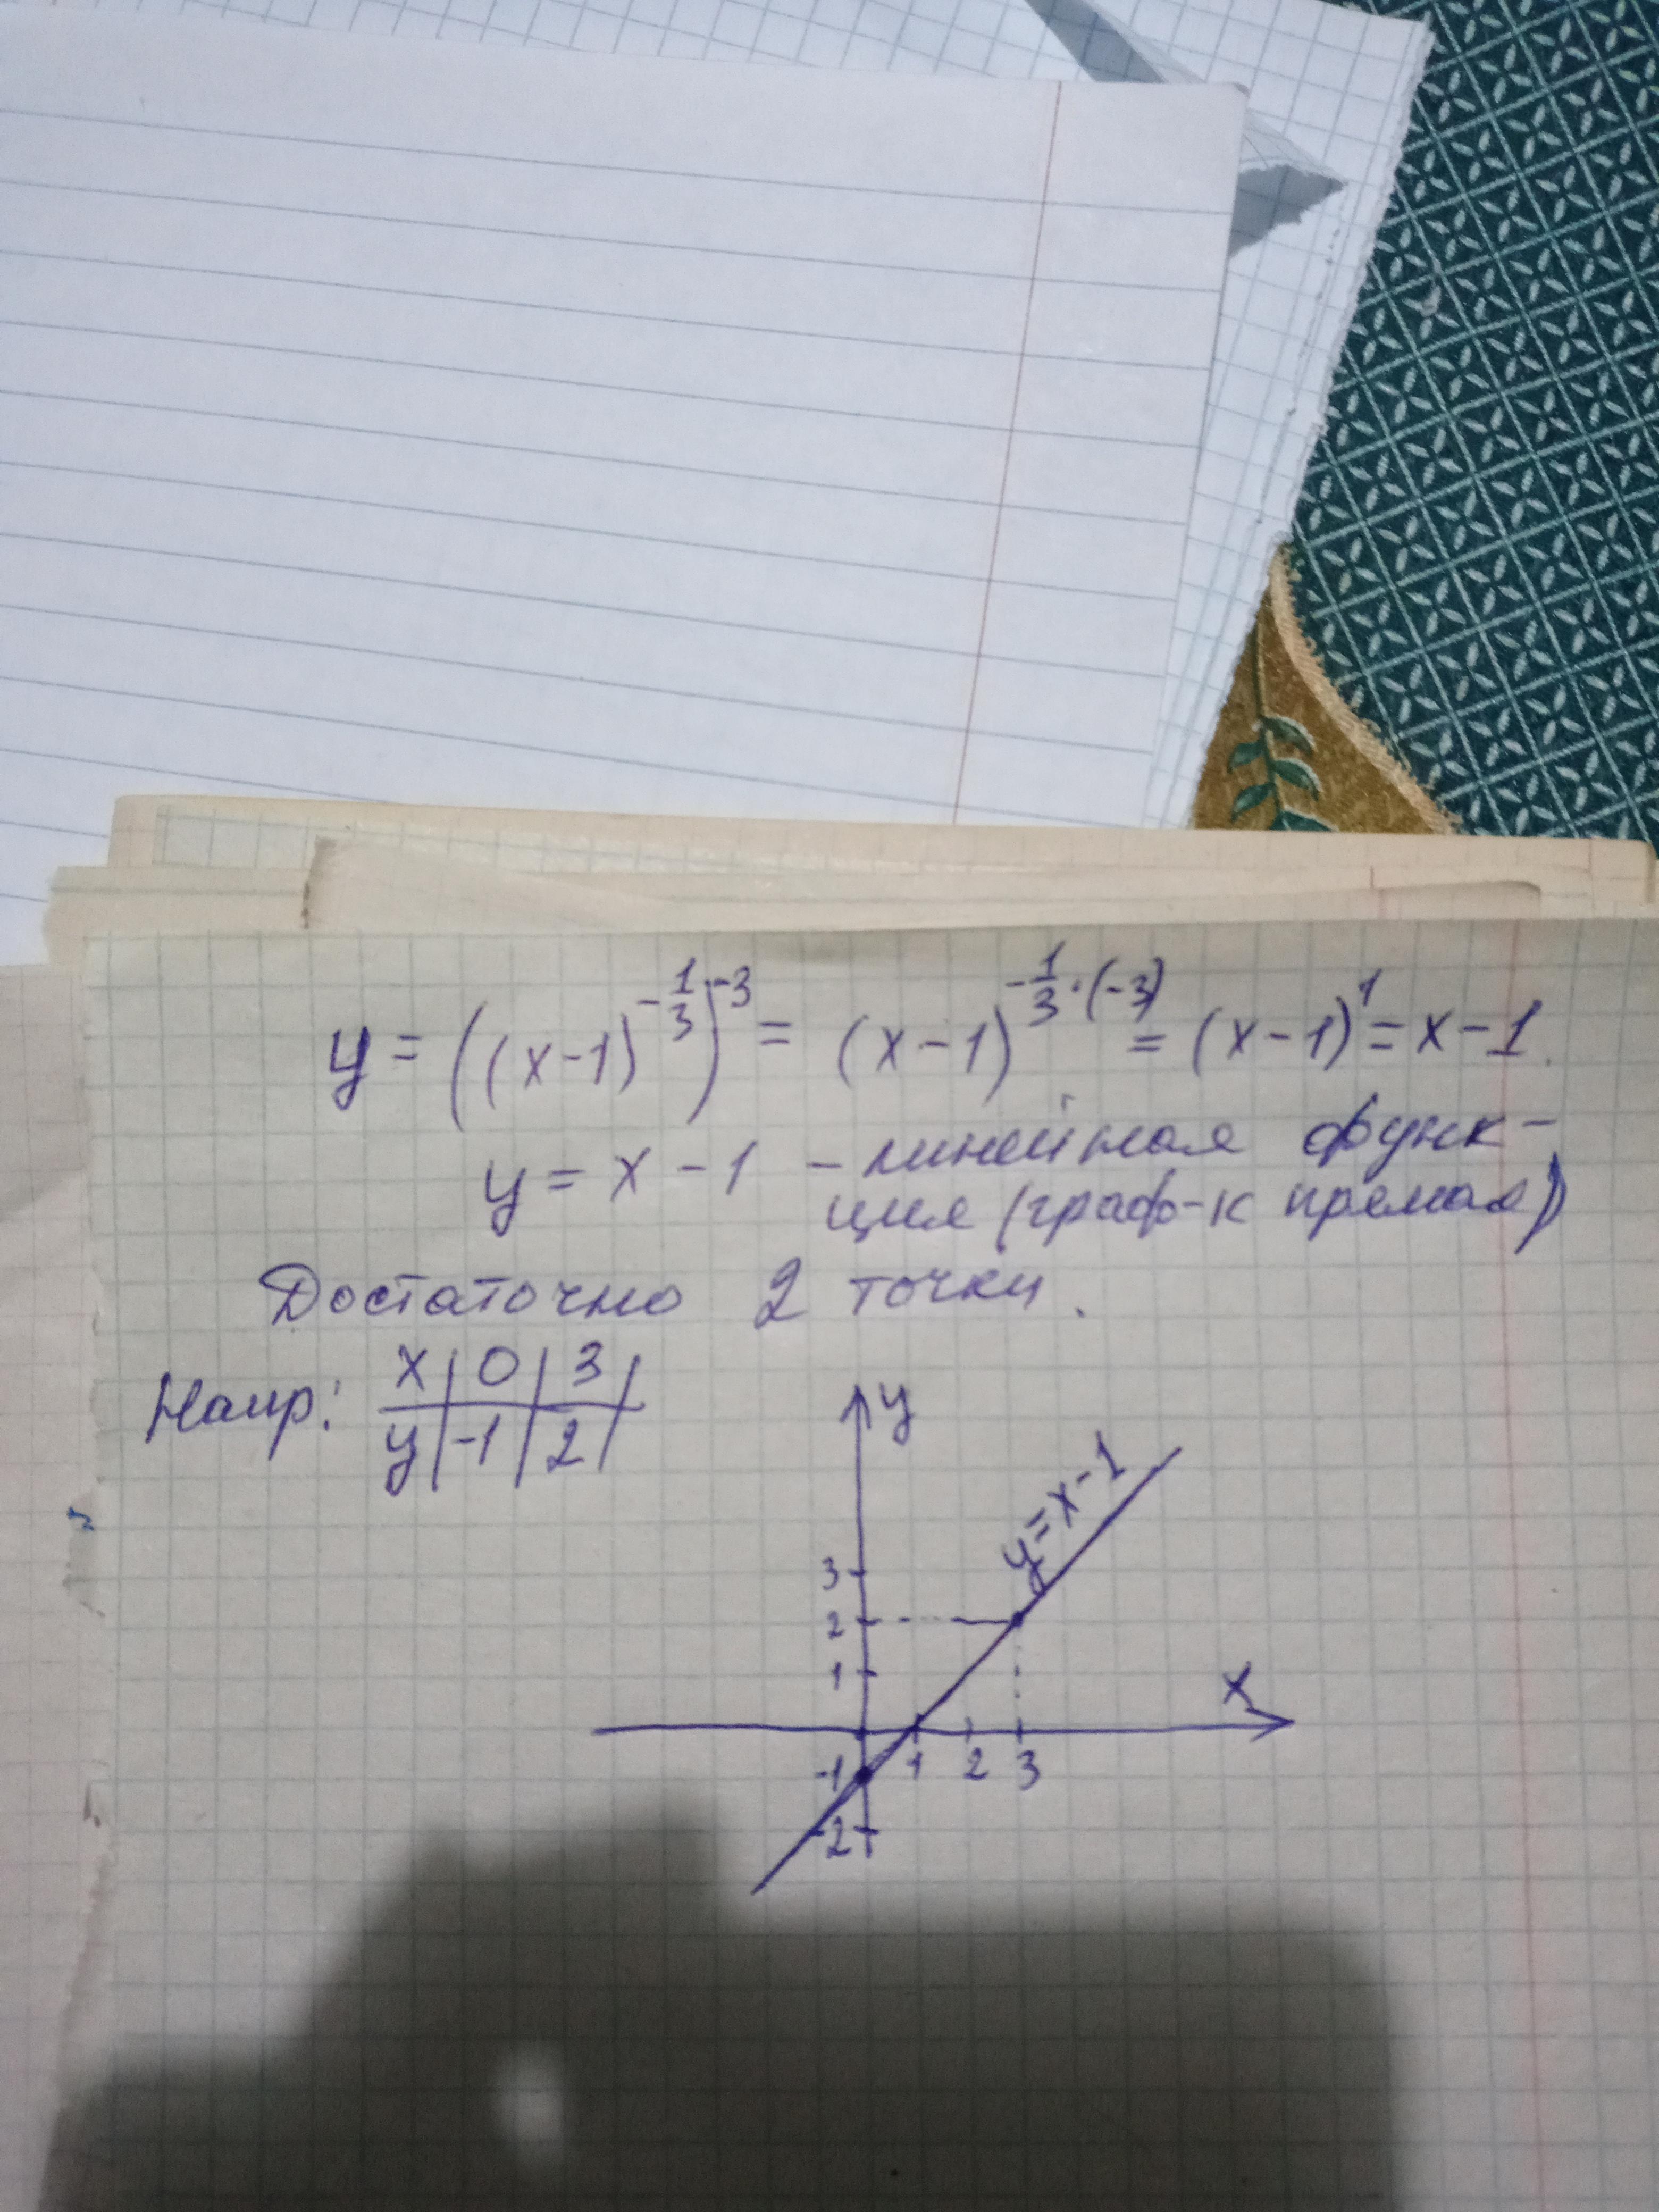 y = ((x-1)^{-\frac{1}{3}})^{-3} = (x-1)^{-\frac{1}{3}·(-3)} = (x-1)^1 = x-1.
y = x-1 – линейная функ-
ция (граф-к прямая)
Достаточно 2 точки.
Напр: x | 0 | 3 |
y | -1 | 2 |
y
y=x-1
3
2
1
x
-1 1 2 3
-2